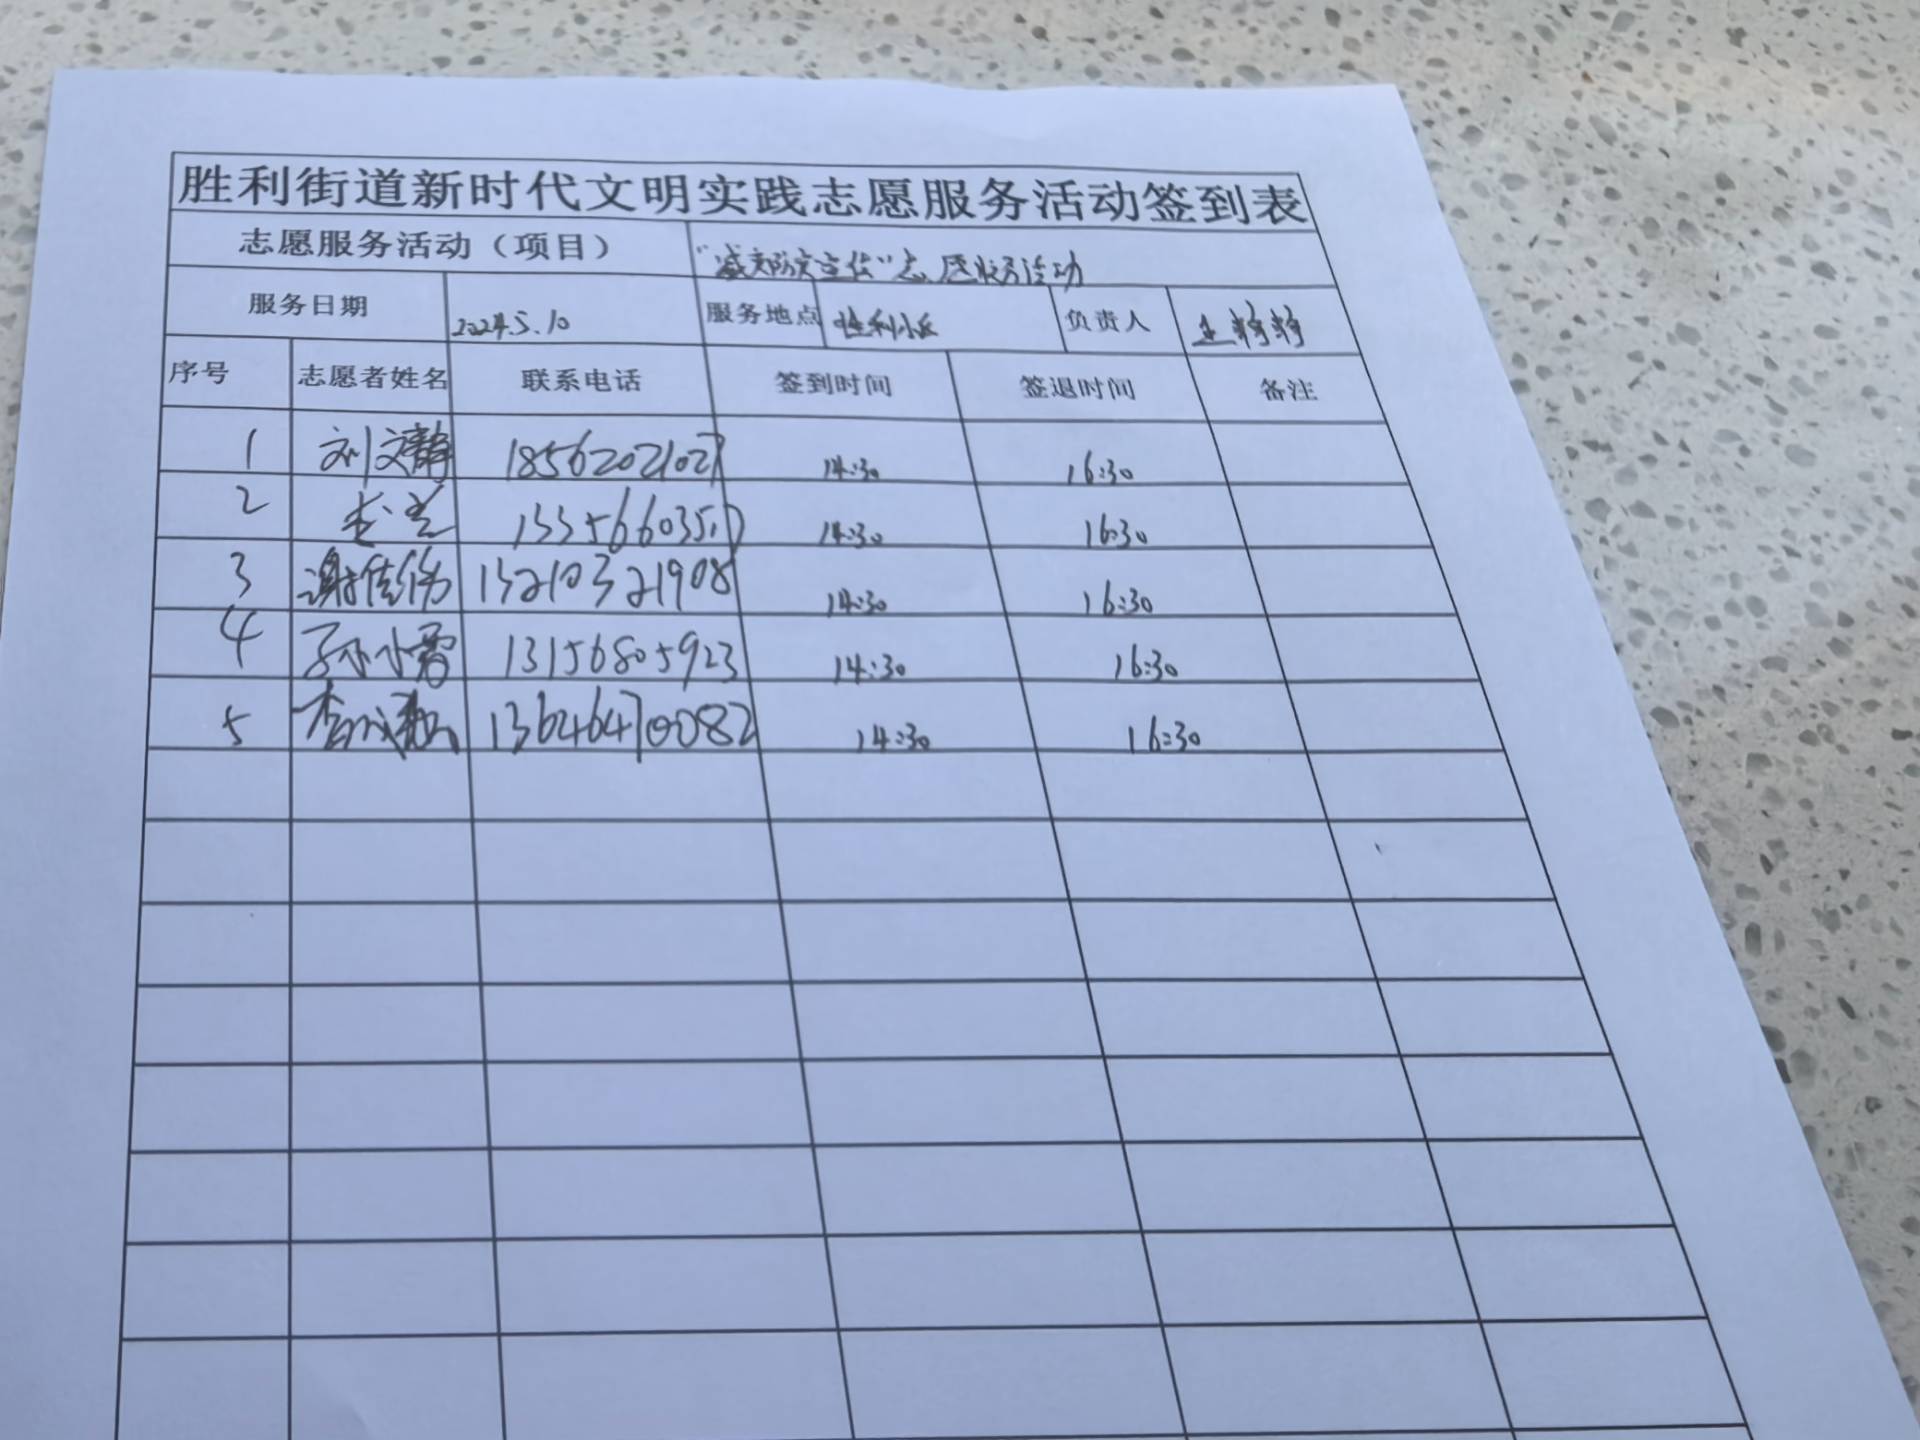 胜利街道新时代文明实践志愿服务活动签到表
志愿服务活动（项目） “减灾防灾宣传”志愿服务活动
服务日期 2024.5.10 服务地点 胜利小区 负责人 王婷婷
序号 志愿者姓名 联系电话 签到时间 签退时间 备注
1 刘文静 18562021027 14:30 16:30
2 14:30 16:30
3 谢佳伟 13210321908 14:30 16:30
4 孙小雷 13156805923 14:30 16:30
5 13646470082 14:30 16:30